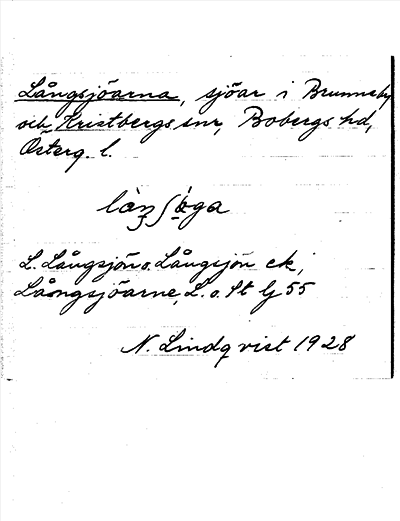 Långsjöarna, sjöar i Brunneby
och Kristbergs snr, Bobergs hd,
Österg. l.
L. Långsjön o. Långsjön ek,
Långsjöarne, L. o. St Gj 55
N. Lindqvist 1928